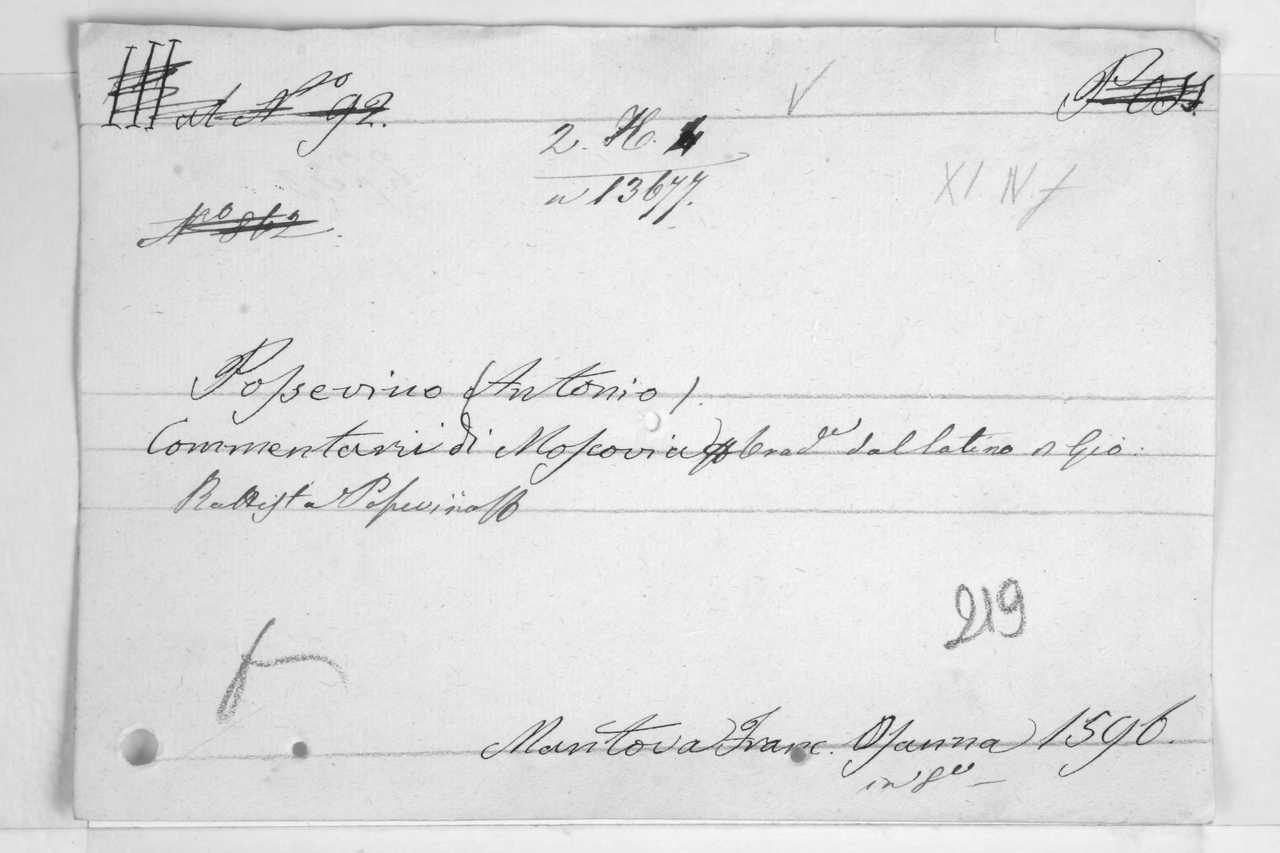 III al Nº 92.
V
Poss.
2. H. 4
n 13677.
XI N f
Nº 862.
Possevino (Antonio).
Commentarii di Moscovia trad.e dal latino da Gio.
Battista Possevino
219
Mantova Franc. Osanna 1596.
in 8º